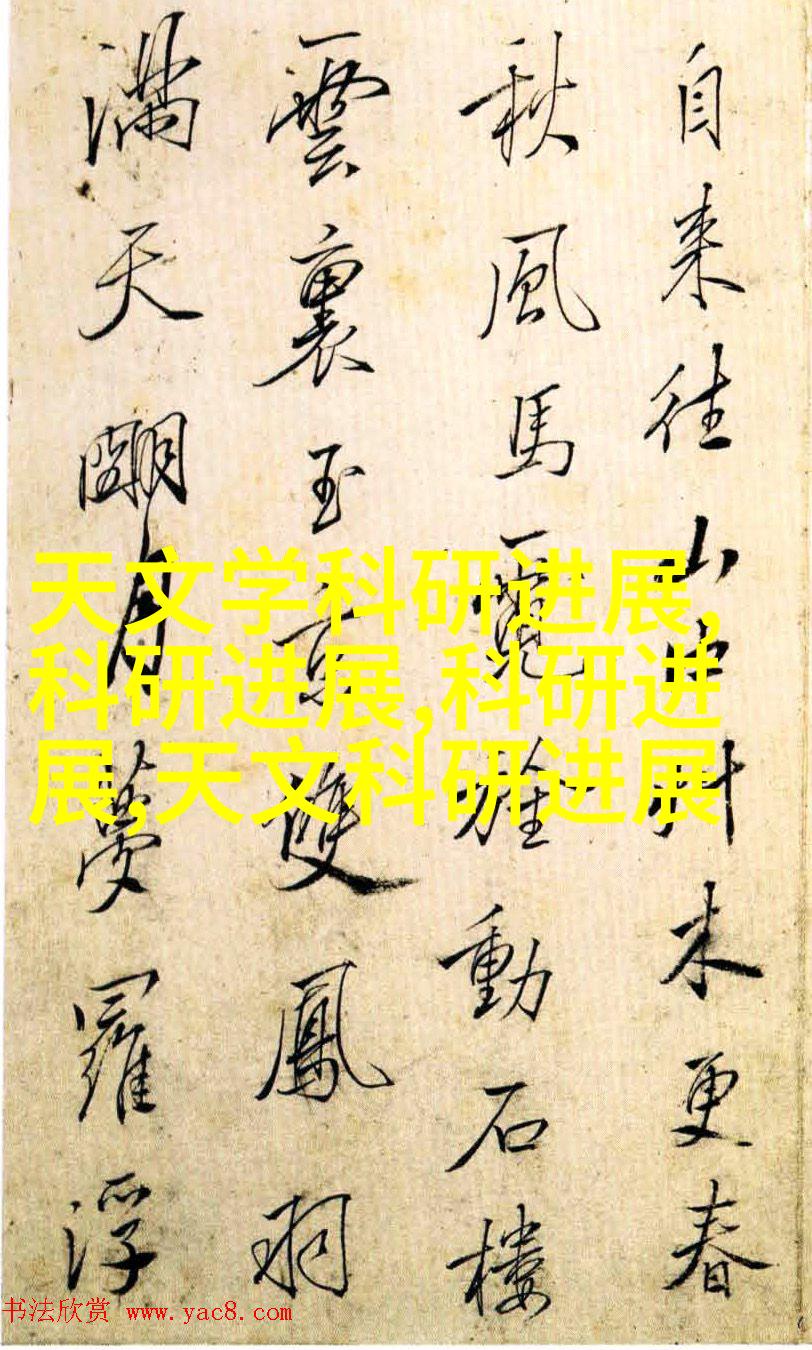 自来往山中斗米更春
秋風馬霓旌動石樓
雲裏玉京雙鳳羽
滿天明月夢羅浮
天文学科研进展,
科研进展,科研进
展,天文科研进展
书法欣赏 www.yac8.com